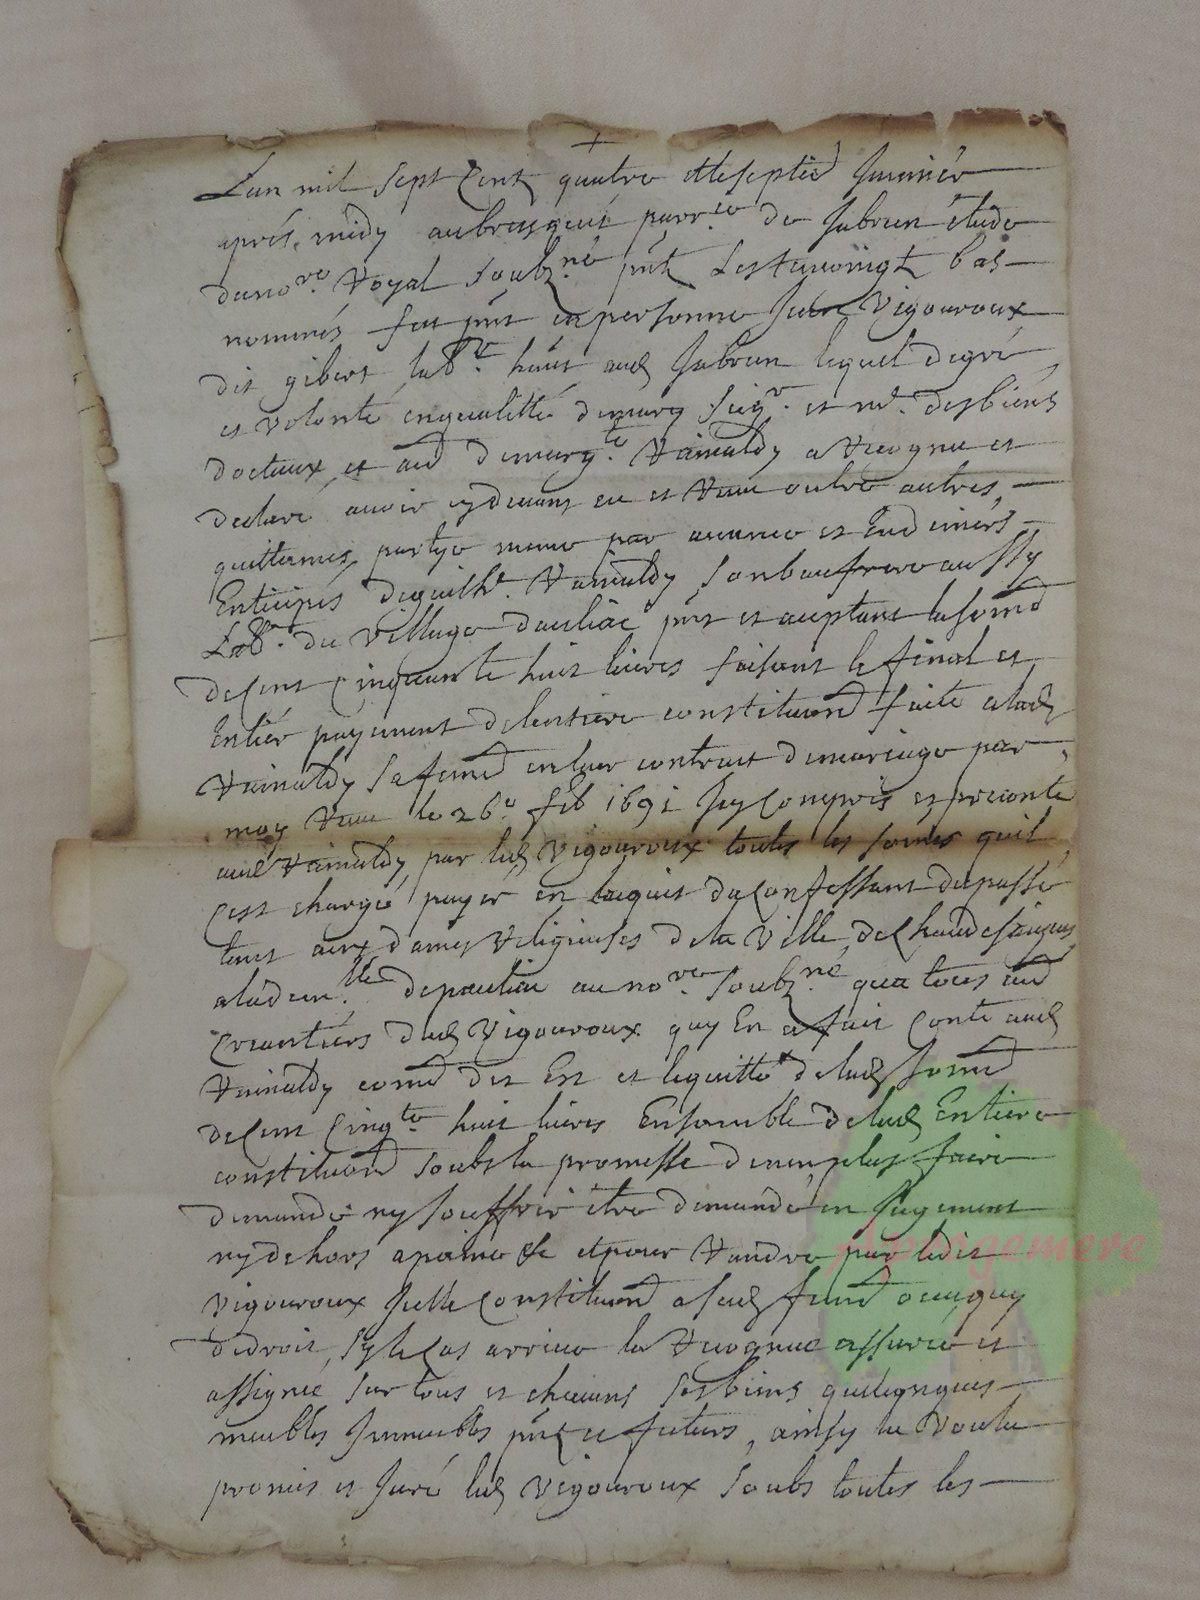 Lan mil sept Cent quatre et le septie Janvier
apres midy au bresquit parr.se de Jabrun étude
du no.re Royal soubz.né pnt Les temoingt bas
nommés fut pnt en personne Jean Vigouroux
dit gibert lab.r haut aud Jabrun lequel de gré
et volonté en quallitté de mary Seig.r et m.e des biens
doctaux et aud de marg.te Rainaldy a Recognu et
declaré avoir cydevant eu et Receu outre autres
quittances partye mesme par avance et
Enticipés de guilh.e Rainaldy son beaufrere aussy
Lab.r du village dauliac pnt et aceptant la some
de Cent Cinquante huit livres faisant le final et
Entiér payement de lentiere constituon faite a lad
Rainaldy sa feme en leur contrait de mariage par
moy Receu le 26.e feb 1691 Icy Compris et preconté
aud Rainaldy par led Vigouroux toutes les somes quil
Cest chargé payer en laquit du Confessant du passé
tant aux dames Religieuses de la Ville de Chaudesaigues
a la dem.lle de pauliac au no.re soubz.né qua tous aud
Creantiérs dud Vigouroux quy En a fait Conte aud
Rainaldy come dit Est et le quitte de lad some
de Cent Cinq.te huit livres Ensemble de lad Entiere
constituon soubs la promesse de nen plus faire
demande ny souffrir être demandé en Jugement
ny dehors a peine et pour Randre par ledit
Vigouroux Jcelle Constituon a sad feme ou a quy
de droit, sy le Cas arrive la Recognue assurée et
assignée sur tous et chacuns ses biens quelconques
meubles Jmmeubles pnt et futurs, ainsy la Voulu
promis et Juré led Vigouroux soubs toutes les
geromgemere